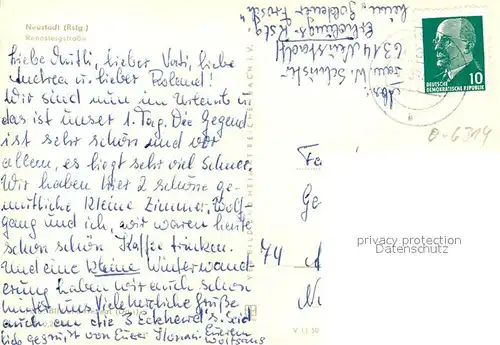 Neustadt (Rstg.)
Rennsteigstraße
Liebe Mutti, lieber Vati, liebe
Andrea u. lieber Roland!
Wir sind nun im Urlaub u.
das ist unser 1. Tag. Die Gegend
ist sehr schön und vor
allem, es liegt sehr viel Schnee.
Wir haben hier 2 schöne ge-
mütliche kleine Zimmer. Wolf-
gang und ich, wir waren heute
schon schön Kaffee trinken.
Und eine kleine Winterwande-
rung haben wir auch schon
hinter uns. Viele herzliche Grüße
auch an die 3 Eckhard's. Seid
lieb gegrüßt von Eurer
Eurem
Wolfgang
Abs.:
W.
6314 Neustadt
Erholungs
heim "Goldener Frosch"
DEUTSCHE
DEMOKRATISCHE REPUBLIK
10
O-6314
Fa
Ge
74
A
privacy protection
DATENSCHUTZ
V 11 50